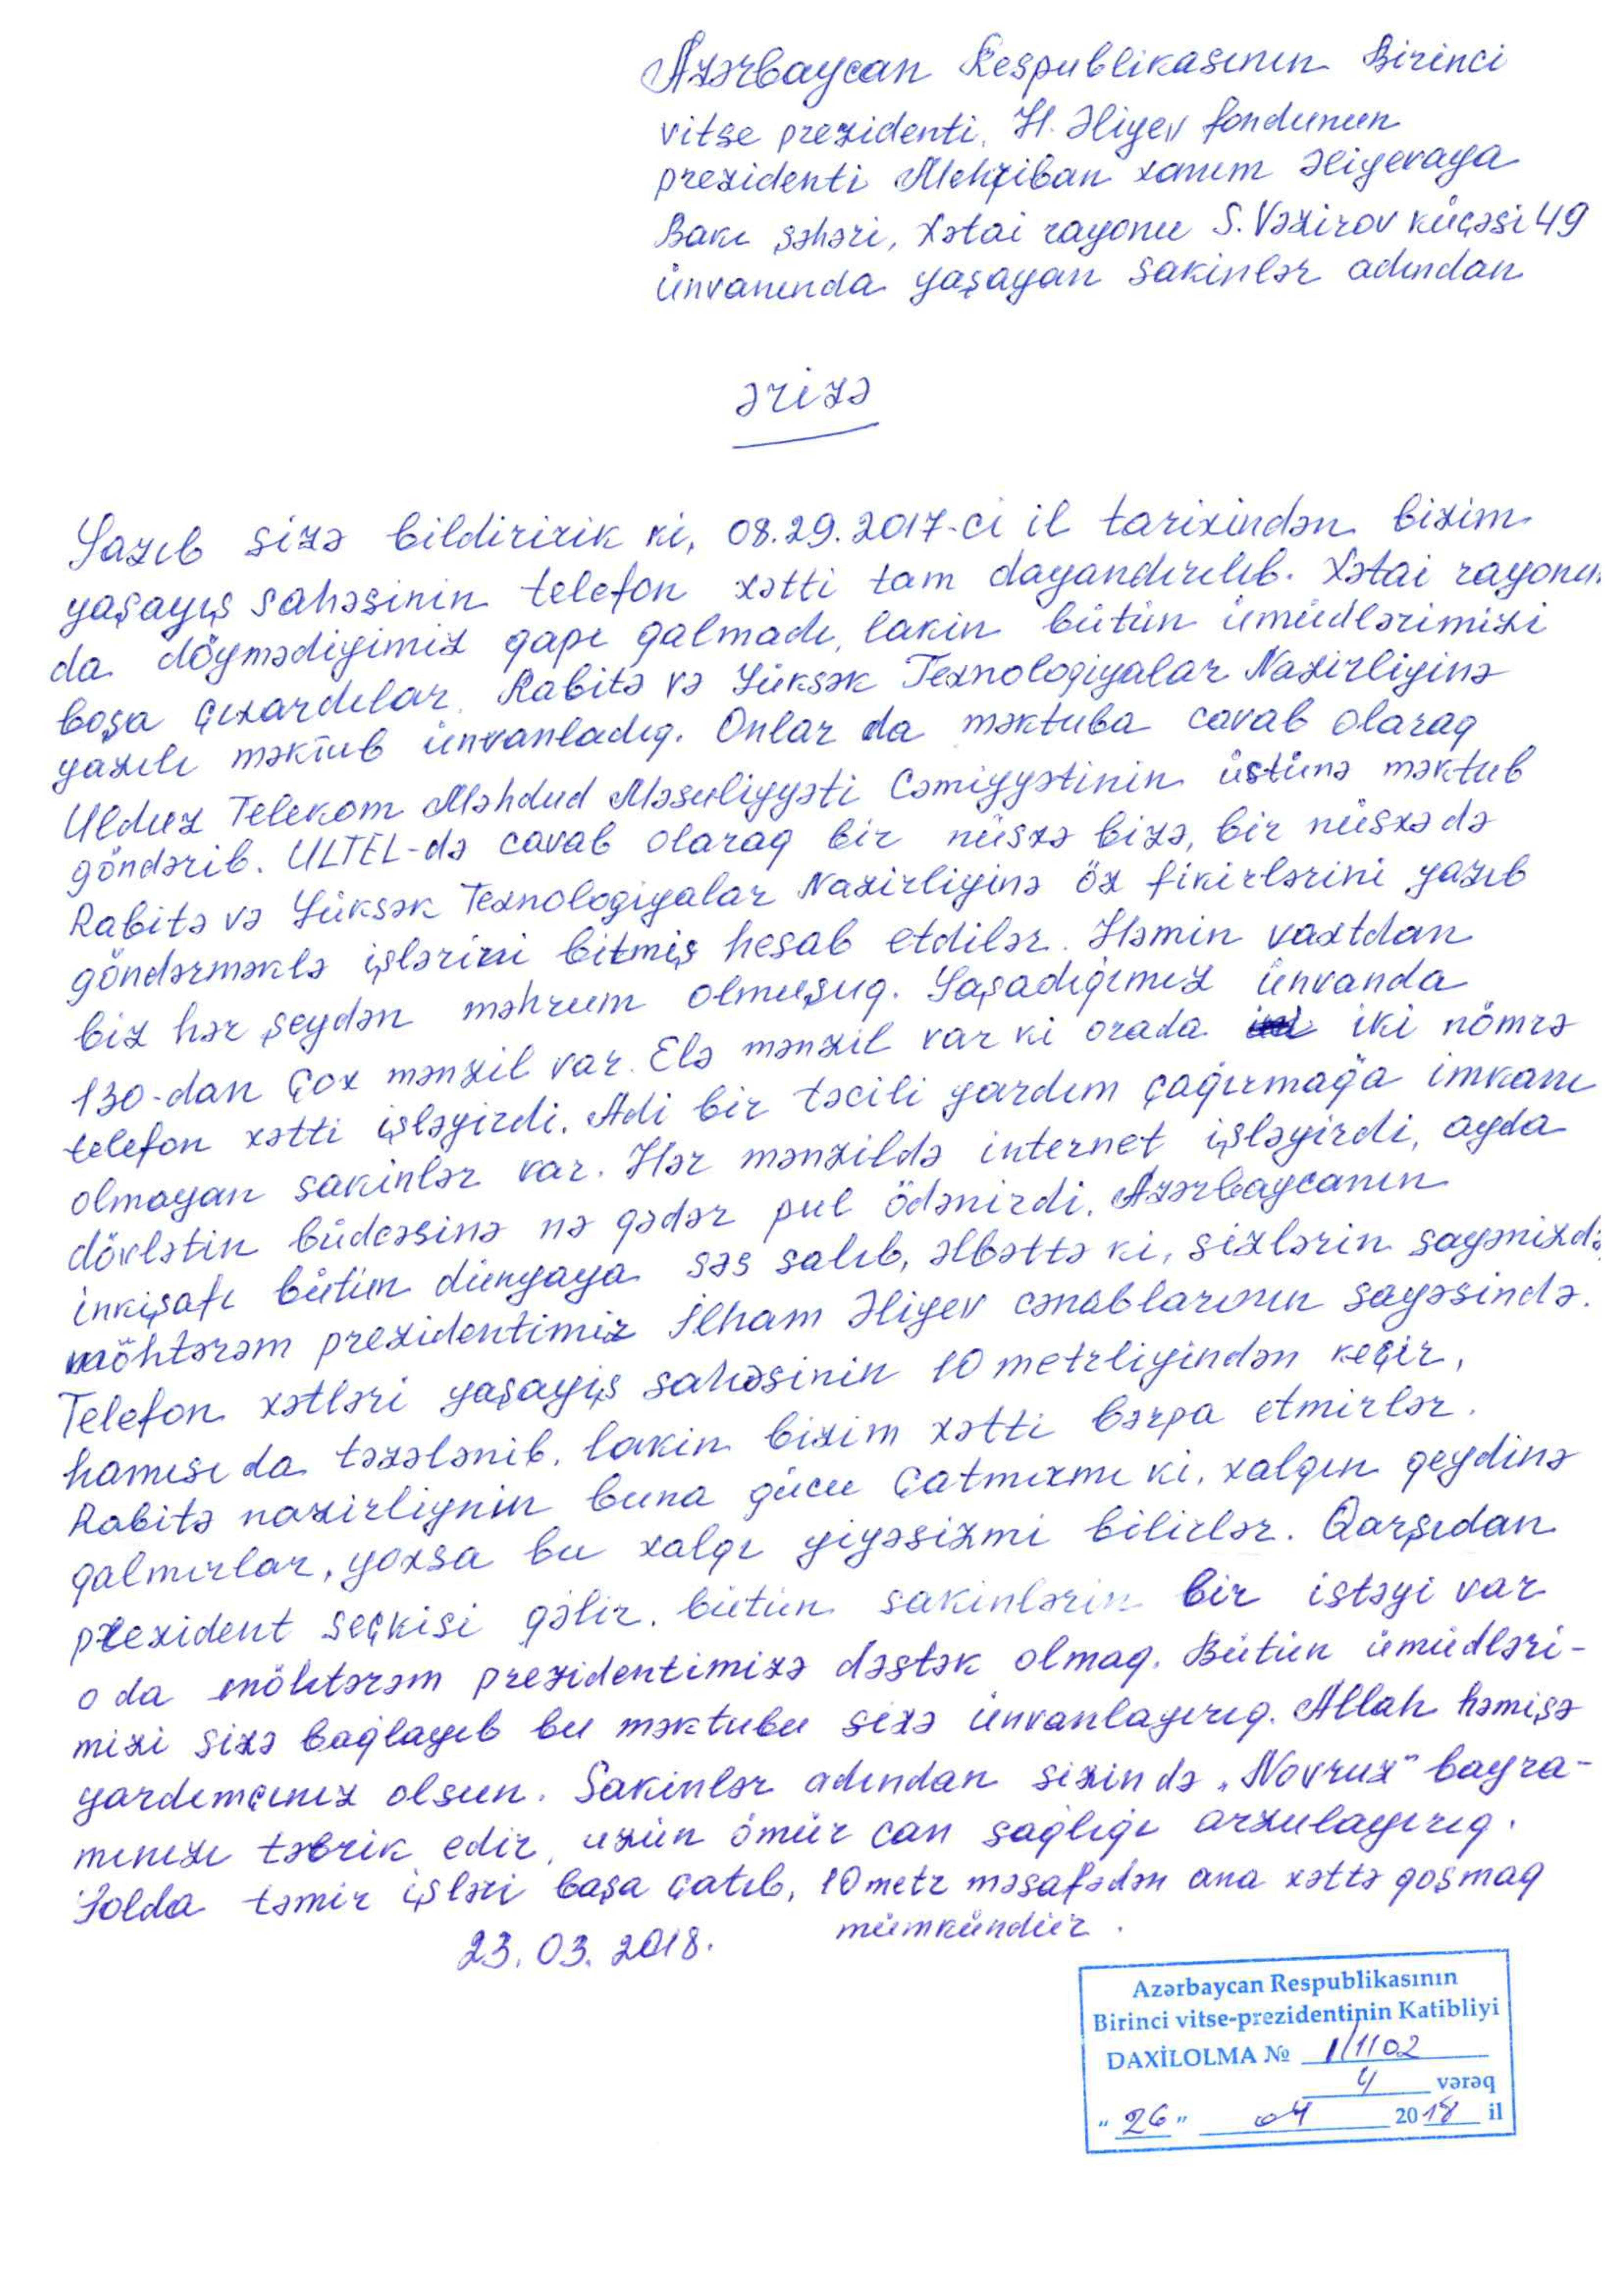 Azərbaycan Respublikasının Birinci
vitse prezidenti, H. Əliyev fondunun
prezidenti Mehriban xanım Əliyevaya
Bakı şəhəri, Xətai rayonu S. Vəzirov küçəsi 49
ünvanında yaşayan sakinlər adından
ərizə
Yazıb sizə bildiririk ki, 08.29.2017-ci il tarixindən bizim
yaşayış sahəsinin telefon xətti tam dayandırılıb. Xətai rayonun
da döymədiyimiz qapı qalmadı, lakin bütün ümüdlərimizi
boşa çıxardılar. Rabitə və Yüksək Texnologiyalar Nazirliyinə
yazılı məktub ünvanladıq. Onlar da məktuba cavab olaraq
Ulduz Telekom Məhdud Məsuliyyəti Cəmiyyətinin üstünə məktub
göndərib. ULTEL-də cavab olaraq bir nüsxə bizə, bir nüsxədə
Rabitə və Yüksək Texnologiyalar Nazirliyinə öz fikirlərini yazıb
göndərməklə işlərini bitmiş hesab etdilər. Həmin vaxtdan
biz hər şeydən məhrum olmuşuq. Yaşadığımız ünvanda
130-dan çox mənzil var. Elə mənzil var ki orada iki nömrə
telefon xətti işləyirdi. Adi bir təcili yardım çağırmağa imkanı
olmayan sakinlər var. Hər mənzildə internet işləyirdi, ayda
dövlətin büdcəsinə nə qədər pul ödənirdi. Azərbaycanın
inkişafı bütün dünyaya səs salıb, əlbəttə ki, sizlərin sayənizdə,
möhtərəm prezidentimiz İlham Əliyev cənablarının sayəsində.
Telefon xətləri yaşayış sahəsinin 10 metrliyindən keçir,
hamısı da təzələnib, lakin bizim xətti bərpa etmirlər.
Rabitə nazirliynin buna gücü çatmırmı ki, xalqın qeydinə
qalmırlar, yoxsa bu xalqı yiyəsizmi bilirlər. Qarşıdan
prezident seçkisi gəlir. bütün sakinlərin bir istəyi var
o da möhtərəm prezidentimizə dəstək olmaq. Bütün ümüdləri-
mizi sizə bağlayıb bu məktubu sizə ünvanlayırıq. Allah həmişə
yardımçınız olsun. Sakinlər adından sizin də „Novruz" bayra-
mınızı təbrik edir, uzün ömür can sağlığı arzulayırıq.
Yolda təmir işləri başa çatıb, 10 metr məsafədən ana xəttə qoşmaq
mümkündür.
23.03.2018.
Azərbaycan Respublikasının
Birinci vitse-prezidentinin Katibliyi
DAXİLOLMA № 1/1102
4 vərəq
"26" 04 2018 il